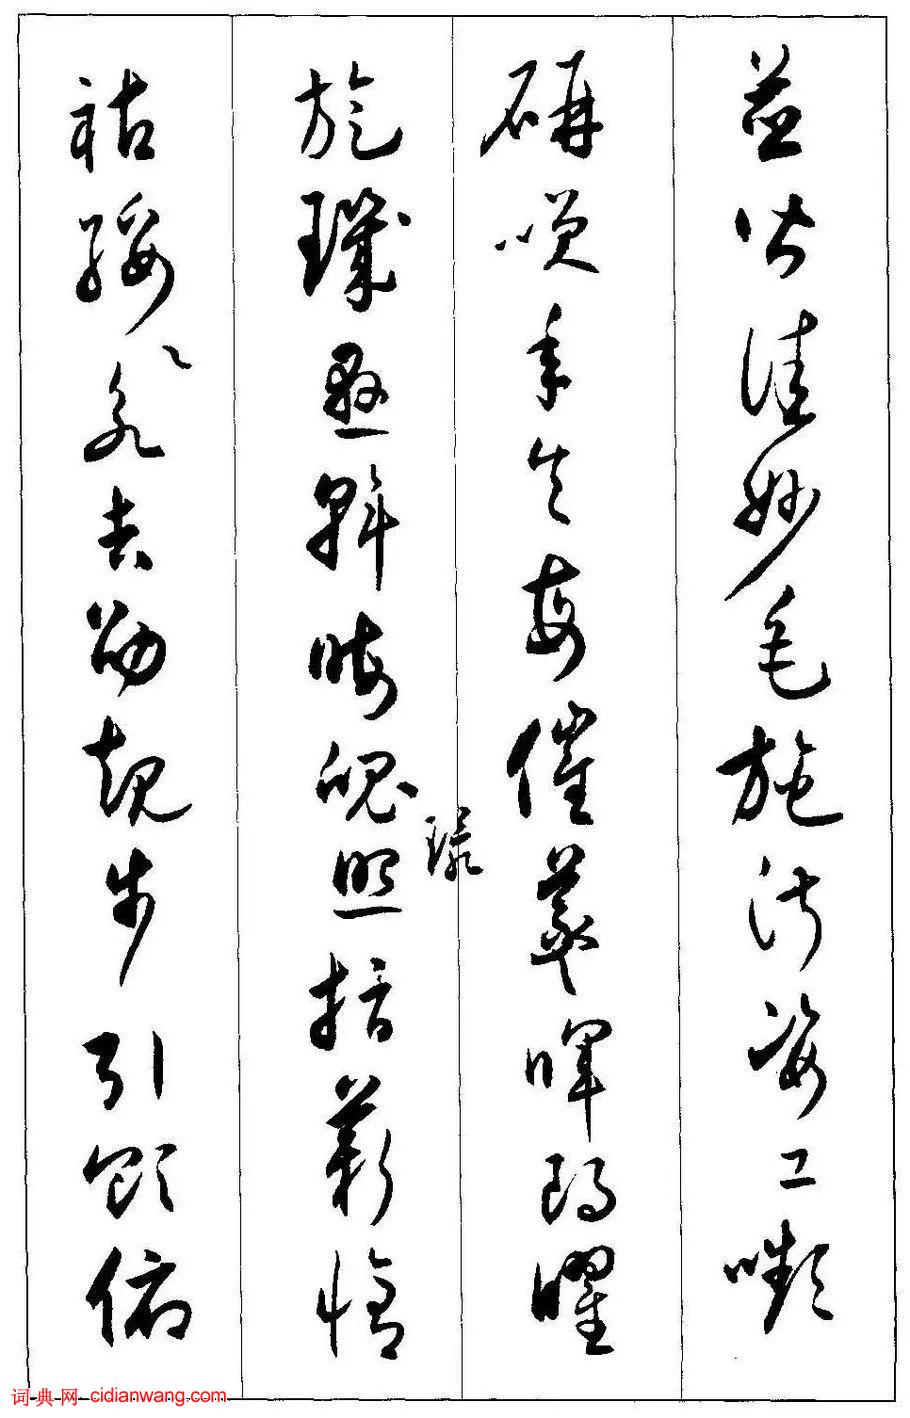 並皆佳妙毛施淑姿工嚬
研咲年矢每催羲暉朗曜
旋璣懸斡晦魄環照指薪脩
祜綏永吉劭矩步引領俯
词典网 cidianwang.com